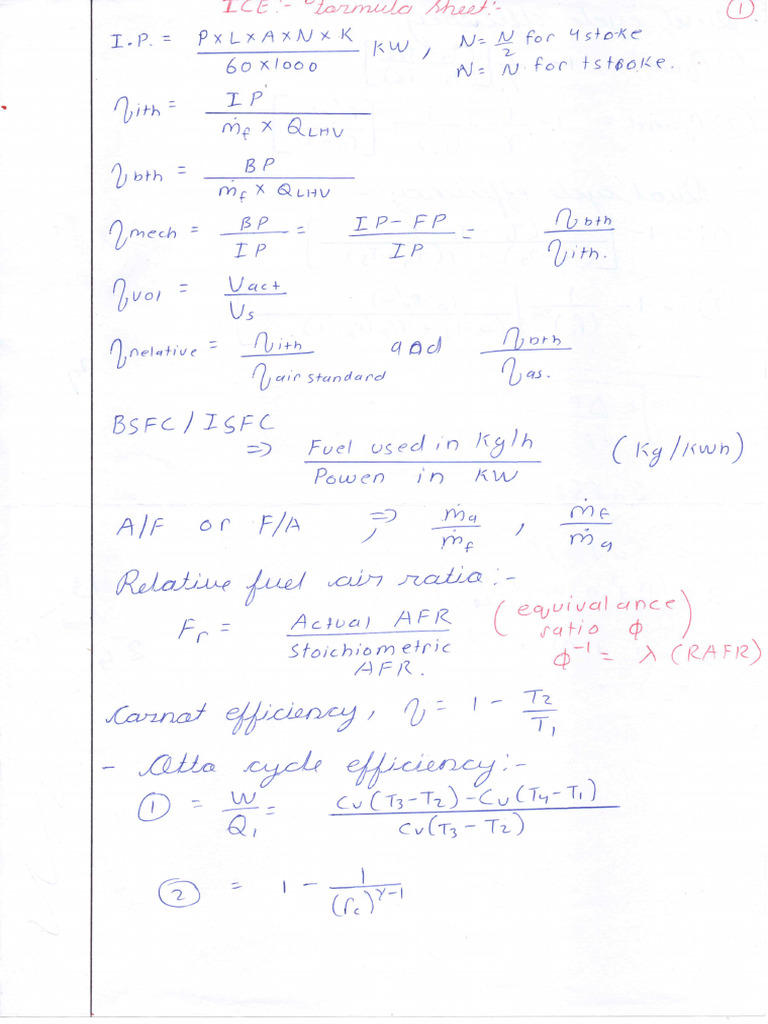 ICE:- Formula Sheet:- ①
I.P. = P×L×A×N×K / 60×1000 KW, N = N/2 for 4stoke
N = N for tstroke.
η ith = IP / ṁf × QLHV
η bth = BP / ṁf × QLHV
η mech = BP / IP = IP-FP / IP = η bth / η ith.
η vol = Vact / Vs
η relative = η ith / η air standard and η bth / η as.
BSFC / ISFC
⇒ Fuel used in Kg/h / Power in KW (Kg/KWh)
A/F or F/A ⇒ ṁa / ṁf , ṁf / ṁa
Relative fuel air ratio:-
Fr = Actual AFR / Stoichiometric AFR. (equivalance ratio ϕ)
ϕ⁻¹ = λ (RAFR)
Carnot efficiency, η = 1 - T2 / T1
- Otto cycle efficiency:-
① = W / Q1 = Cv(T3-T2) - Cv(T4-T1) / Cv(T3-T2)
② = 1 - 1 / (rc)^γ-1